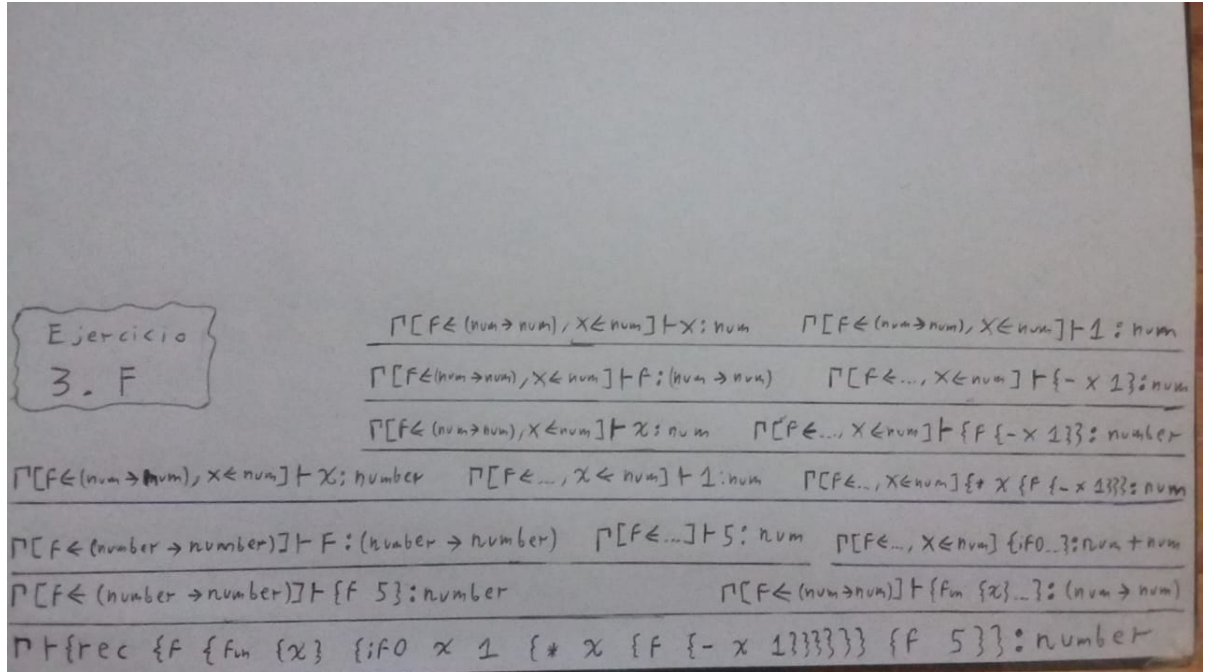 Ejercicio
3. F
Γ[F←(num→num), X←num]⊢X: num    Γ[F←(num→num), X←num]⊢1: num
Γ[F←(num→num), X←num]⊢F: (num→num)    Γ[F←..., X←num]⊢{- X 1}: num
Γ[F←(num→num), X←num]⊢x: num    Γ[F←..., X←num]⊢{f {- X 1}}: number
Γ[F←(num→num), x←num]⊢x: number    Γ[F←..., x←num]⊢1: num    Γ[F←..., X←num]{* X {F {- x 1}}}: num
Γ[F←(number→number)]⊢F: (number→number)    Γ[F←...]⊢5: num    Γ[F←..., X←num] {if0...}: num + num
Γ[F←(number→number)]⊢{f 5}: number    Γ[F←(num→num)]⊢{Fun {x}...}: (num→num)
Γ⊢{rec {F {Fun {x} {if0 x 1 {* x {F {- x 1}}}}}} {F 5}}: number